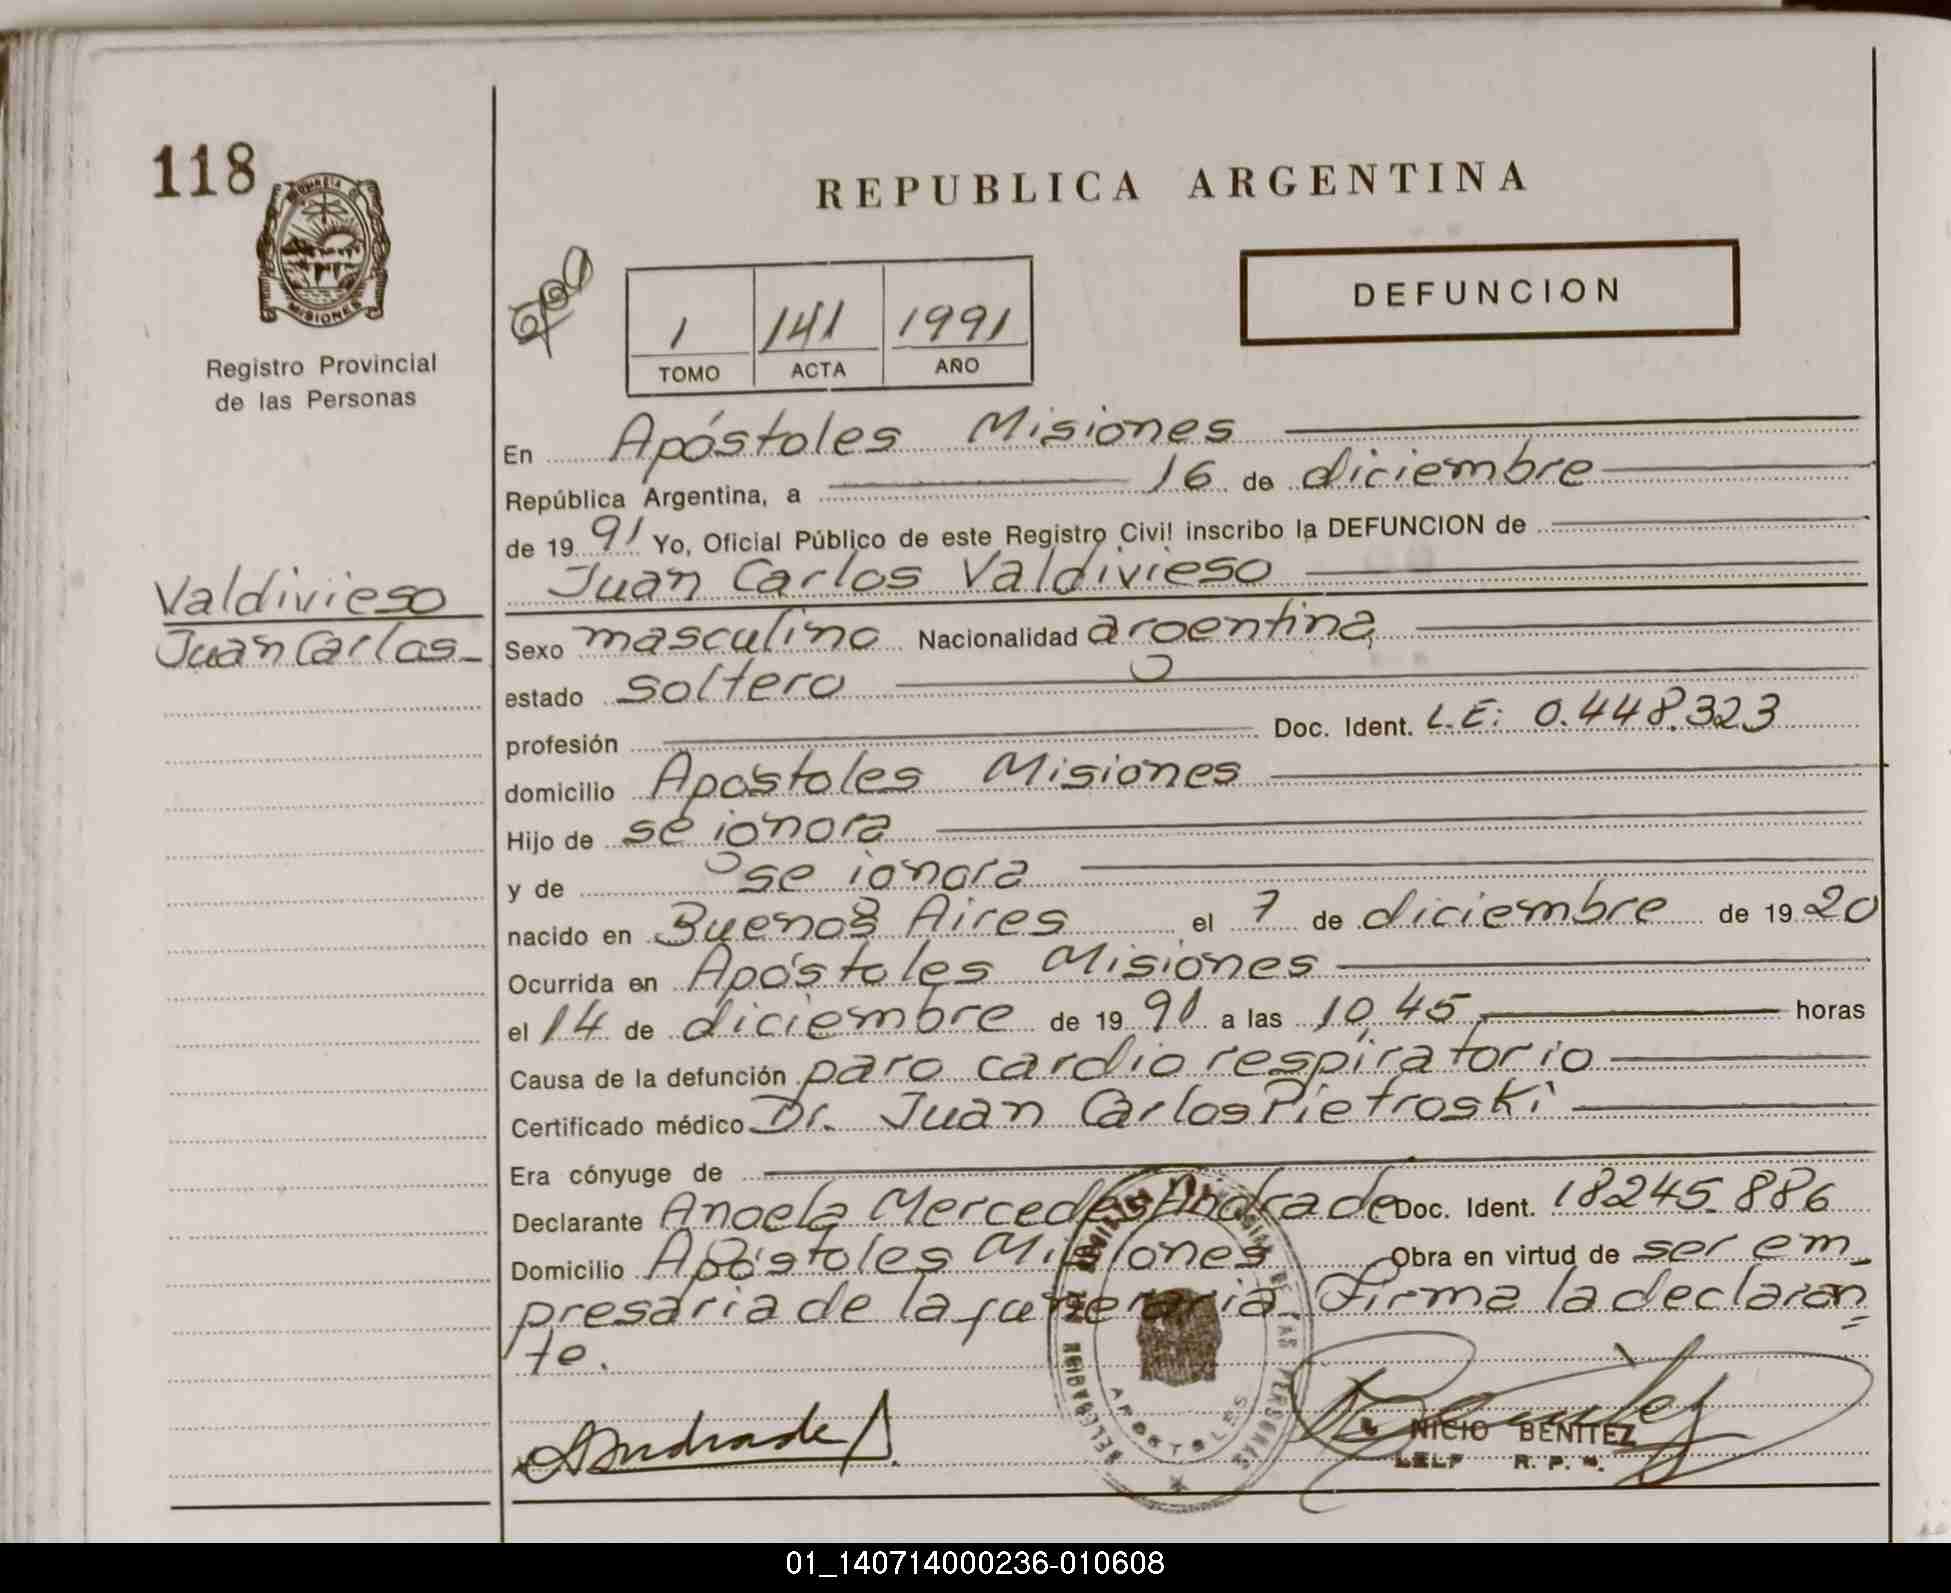 118
REPUBLICA ARGENTINA
MISIONES
Registro Provincial
de las Personas
1 141 1991
TOMO ACTA AÑO
DEFUNCION
En Apóstoles Misiones
República Argentina, a 16 de diciembre
de 1991 Yo, Oficial Público de este Registro Civil inscribo la DEFUNCION de
Juan Carlos Valdivieso
Valdivieso
Juan Carlos
Sexo masculino Nacionalidad argentina
estado soltero
profesión Doc. Ident. L.E: 0.448.323
domicilio Apóstoles Misiones
Hijo de se ignora
y de se ignora
nacido en Buenos Aires el 7 de diciembre de 1920
Ocurrida en Apóstoles Misiones
el 14 de diciembre de 1991 a las 10,45 horas
Causa de la defunción paro cardio respiratorio
Certificado médico Dr. Juan Carlos Pietroski
Era cónyuge de
Declarante Angela Mercedes Andrade Doc. Ident. 18245.886
Domicilio Apóstoles Misiones Obra en virtud de ser em
presaria de la funeraria. Firma la declaran=
te.
Andrade
NICIO BENITEZ
APOSTOLES
01_140714000236-010608